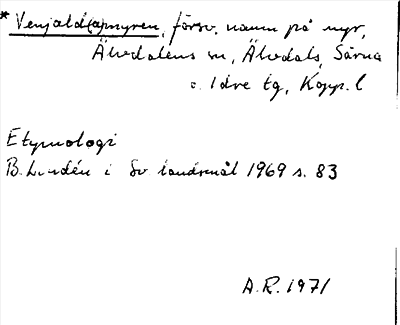 * Venjald(apmyren, försv. namn på myr,
Älvdalens sn, Älvdals, Särna
o. Idre tg, Kopp. l
Etymologi
B. Lindén i Sv landsmål 1969 s. 83
A.R. 1971